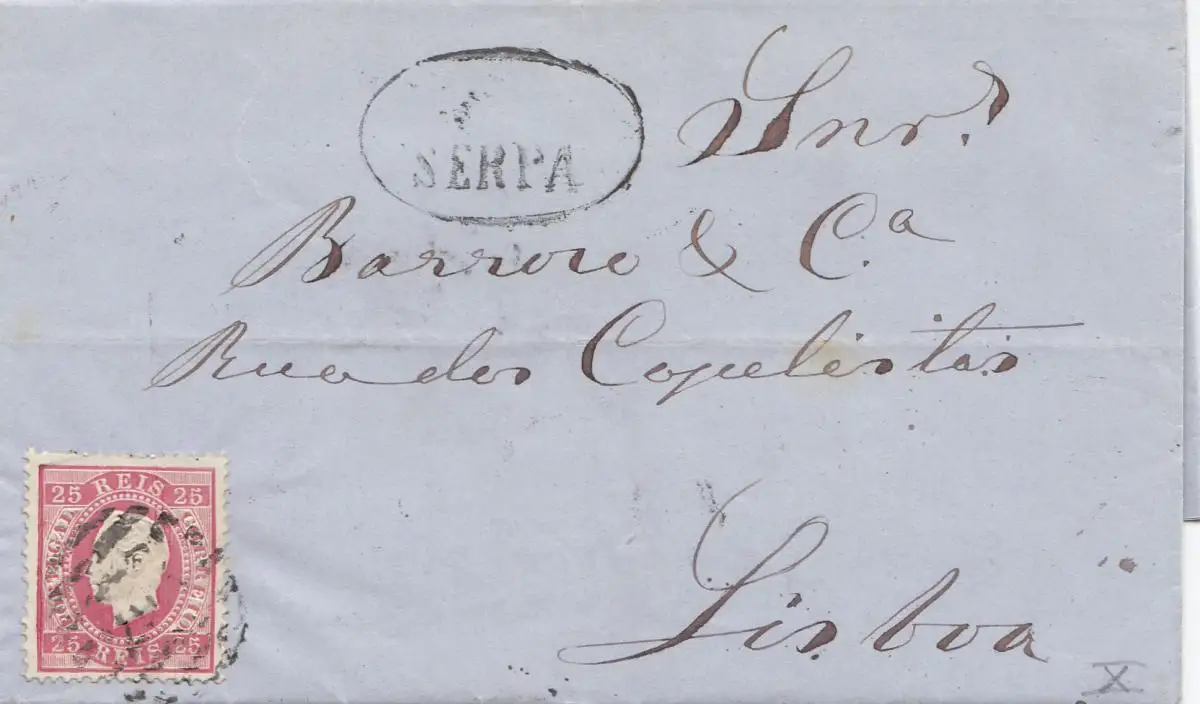 SERPA
Snr.s
Barroso & C.a
Rua dos Capelistas
Lisboa
25 REIS 25
PORTUGAL CORREIO
25 REIS 25
X